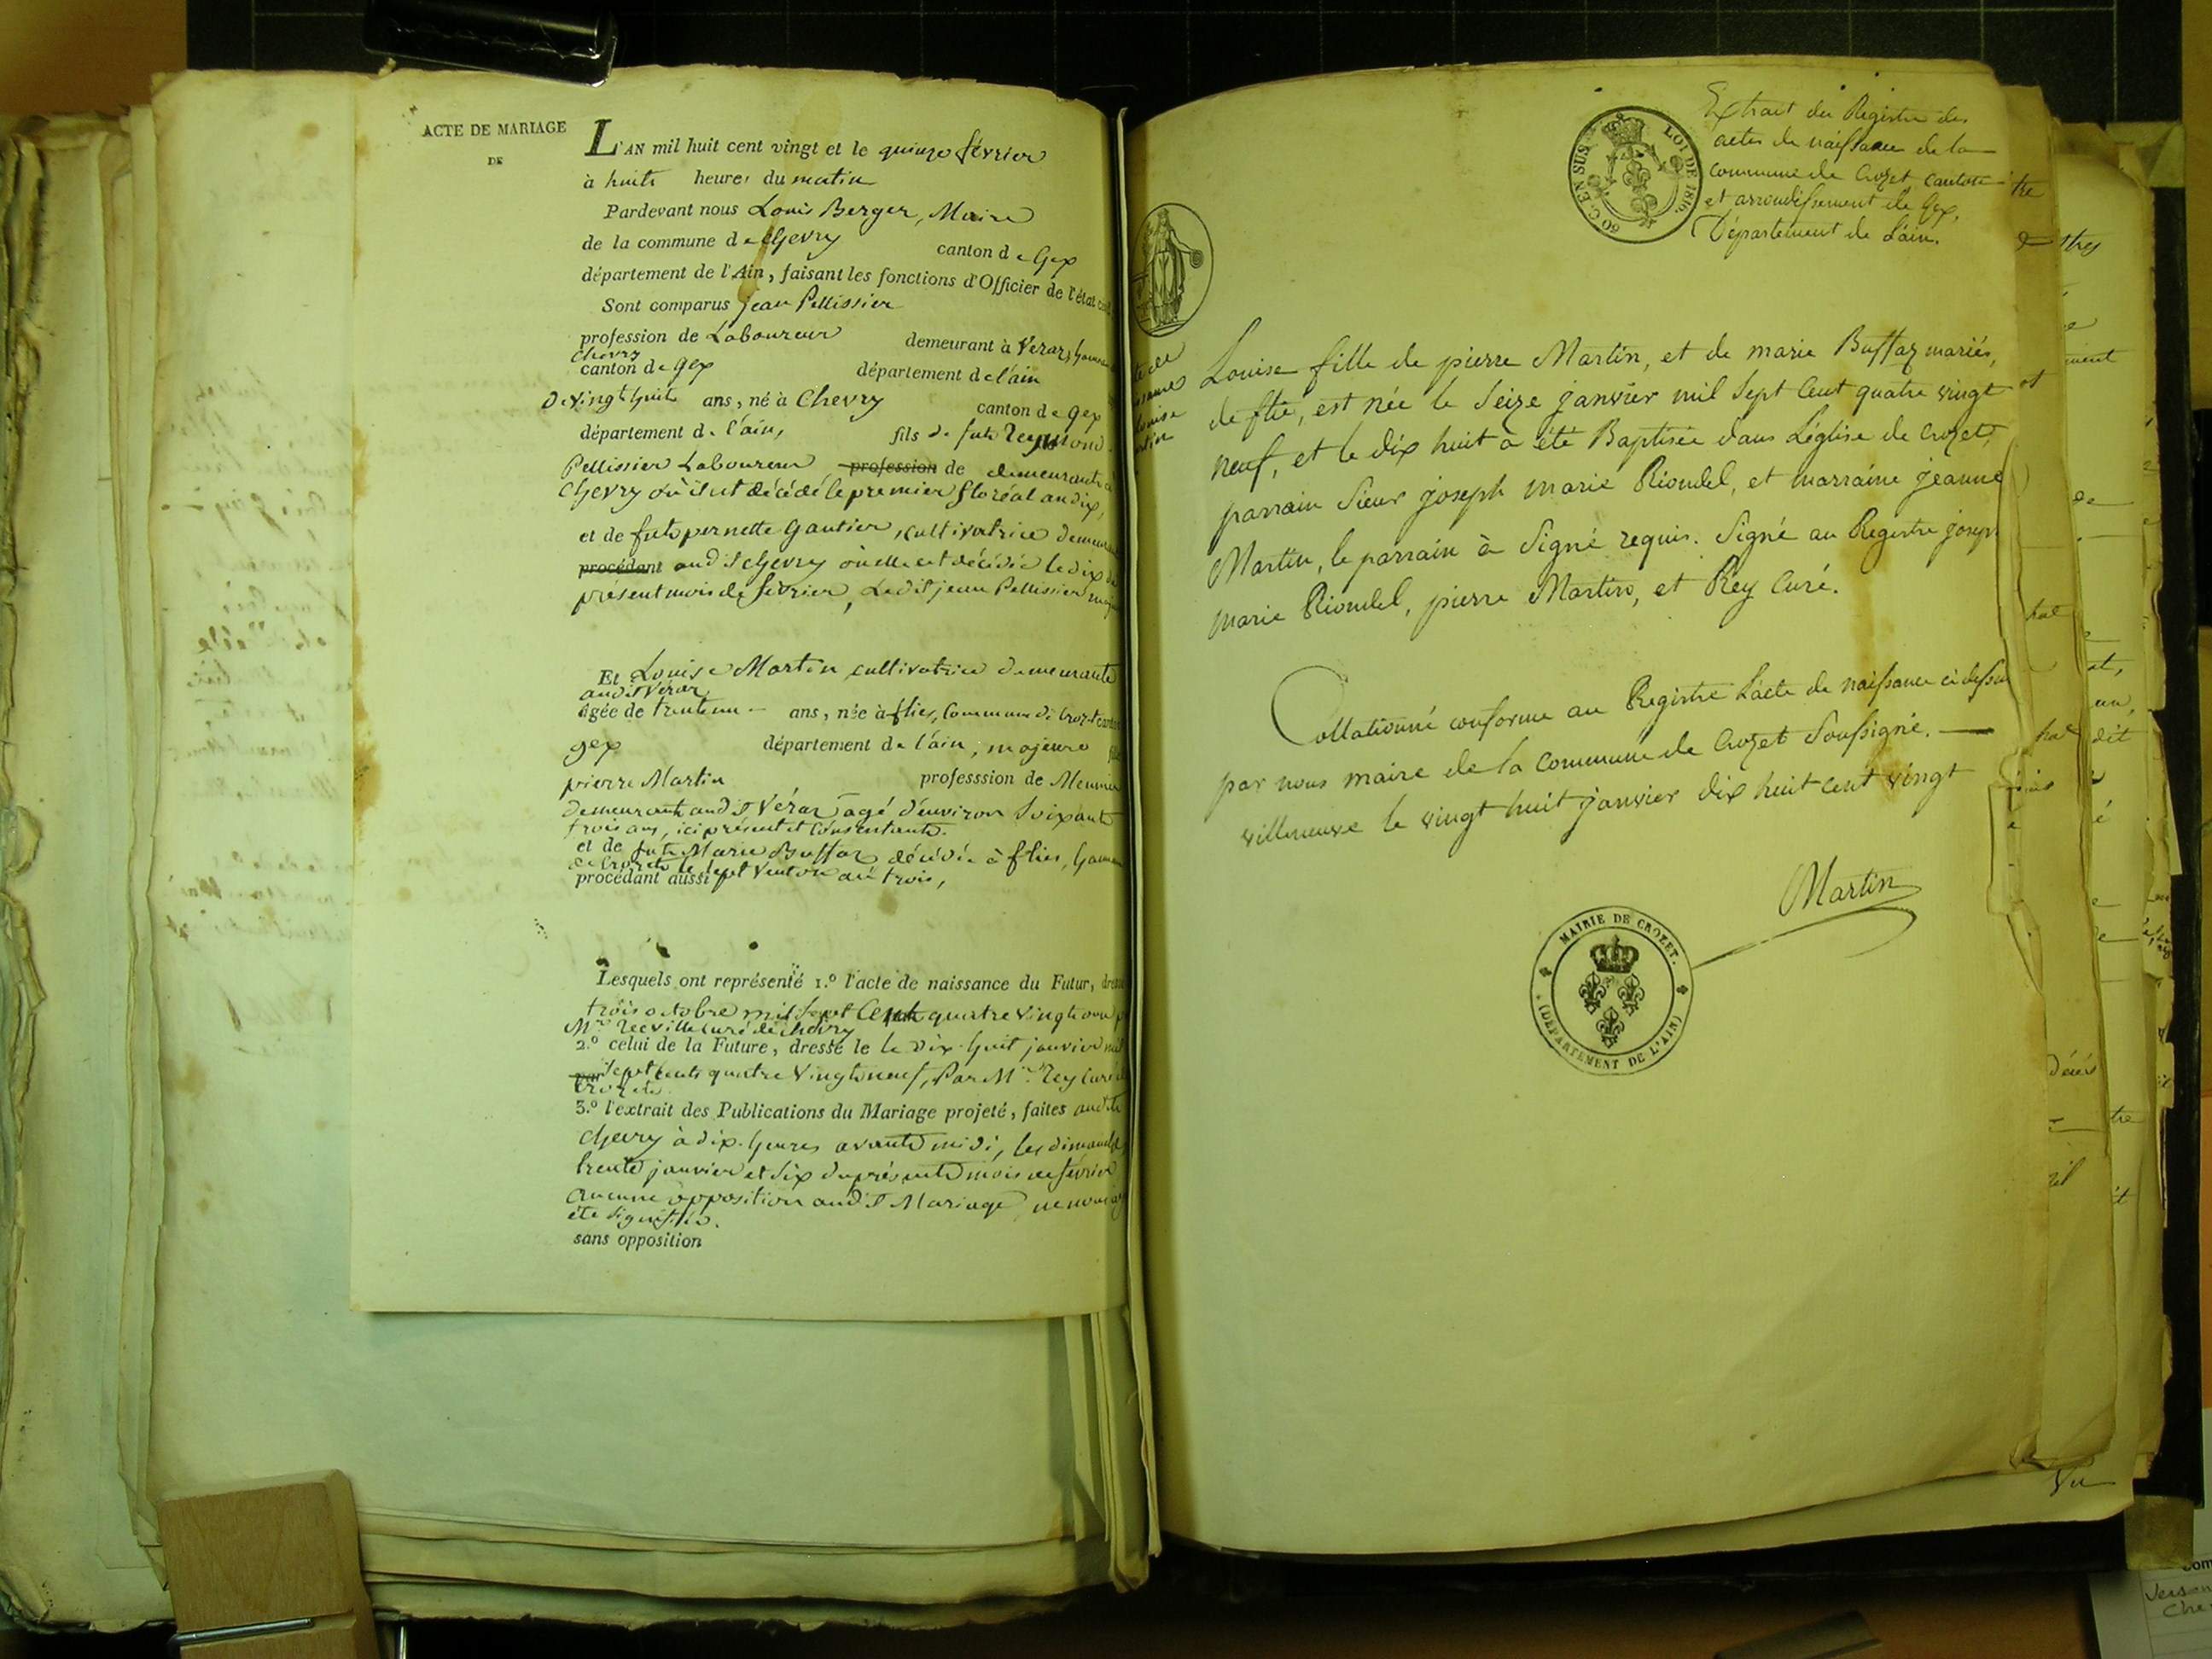 ACTE DE MARIAGE
DE
L'AN mil huit cent vingt et le quinze février
à huit heures du matin
Pardevant nous Louis Berger, Maire
de la commune de Chevry canton de Gex
département de l'Ain, faisant les fonctions d'Officier de l'état
Sont comparus jean Pellissier
profession de Laboureur demeurant à Veraz,
Chevry
canton de Gex département de l'ain
de vingt huit ans, né à Chevry canton de gex
département de l'ain, fils de fut Reymond
Pellissier Laboureur profession de demeurant à
Chevry où il est décédé le premier floréal an dix,
et de fut pernette Gautier, cultivatrice
procédant audit Chevry où elle est décédée le dix du
présent mois de février, Ledit jean Pellissier
Et Louise Martin cultivatrice demeurante
audit Véraz
âgée de trente un ans, née à flies, Commune de Crozet
gex département de l'ain, majeure
pierre Martin professsion de Meunier
demeurant audit Véraz âgé d'environ soixante
trois ans, ici présent et consentant.
et de fut Marie Buffaz décédée à flies,
de Crozet le sept ventose an trois,
procédant aussi
Lesquels ont représenté 1.º l'acte de naissance du Futur,
trois octobre mil sept Cent quatre vingt onze
Mr. curé de chevry
2.º celui de la Future, dressé le le dix huit janvier mil
sept cents quatre vingt neuf, Par Mr. Rey curé
par Crozet.
3.º l'extrait des Publications du Mariage projeté, faites audit
Chevry à dix heures avant midi, les dimanches
trente janvier et six du présent mois de février
aucune opposition audit Mariage ne nous
été signifiée.
sans opposition
60 C. EN SUS LOI DE 1816.
Extrait du Registre des
actes de naissance de la
commune de Crozet canton
et arrondissement de Gex,
Département de L'ain.
Louise fille de pierre Martin, et de marie Buffaz mariés,
de flie, est née le seize janvier mil sept cent quatre vingt
neuf, et le dix huit a été Baptisée dans l'église de Crozet,
parrain sieur joseph marie Rioudel, et marraine jeanne
Martin, le parrain à signé requis. Signé au Registre joseph
marie Rioudel, pierre Martin, et Rey Curé.
Collationné conforme au Registre l'acte de naissance ci dessus
par nous maire de la Commune de Crozet Soussigné.
villeneuve le vingt huit janvier dix huit cent vingt
Martin
MAIRIE DE CROZET.
(DÉPARTEMENT DE L'AIN)